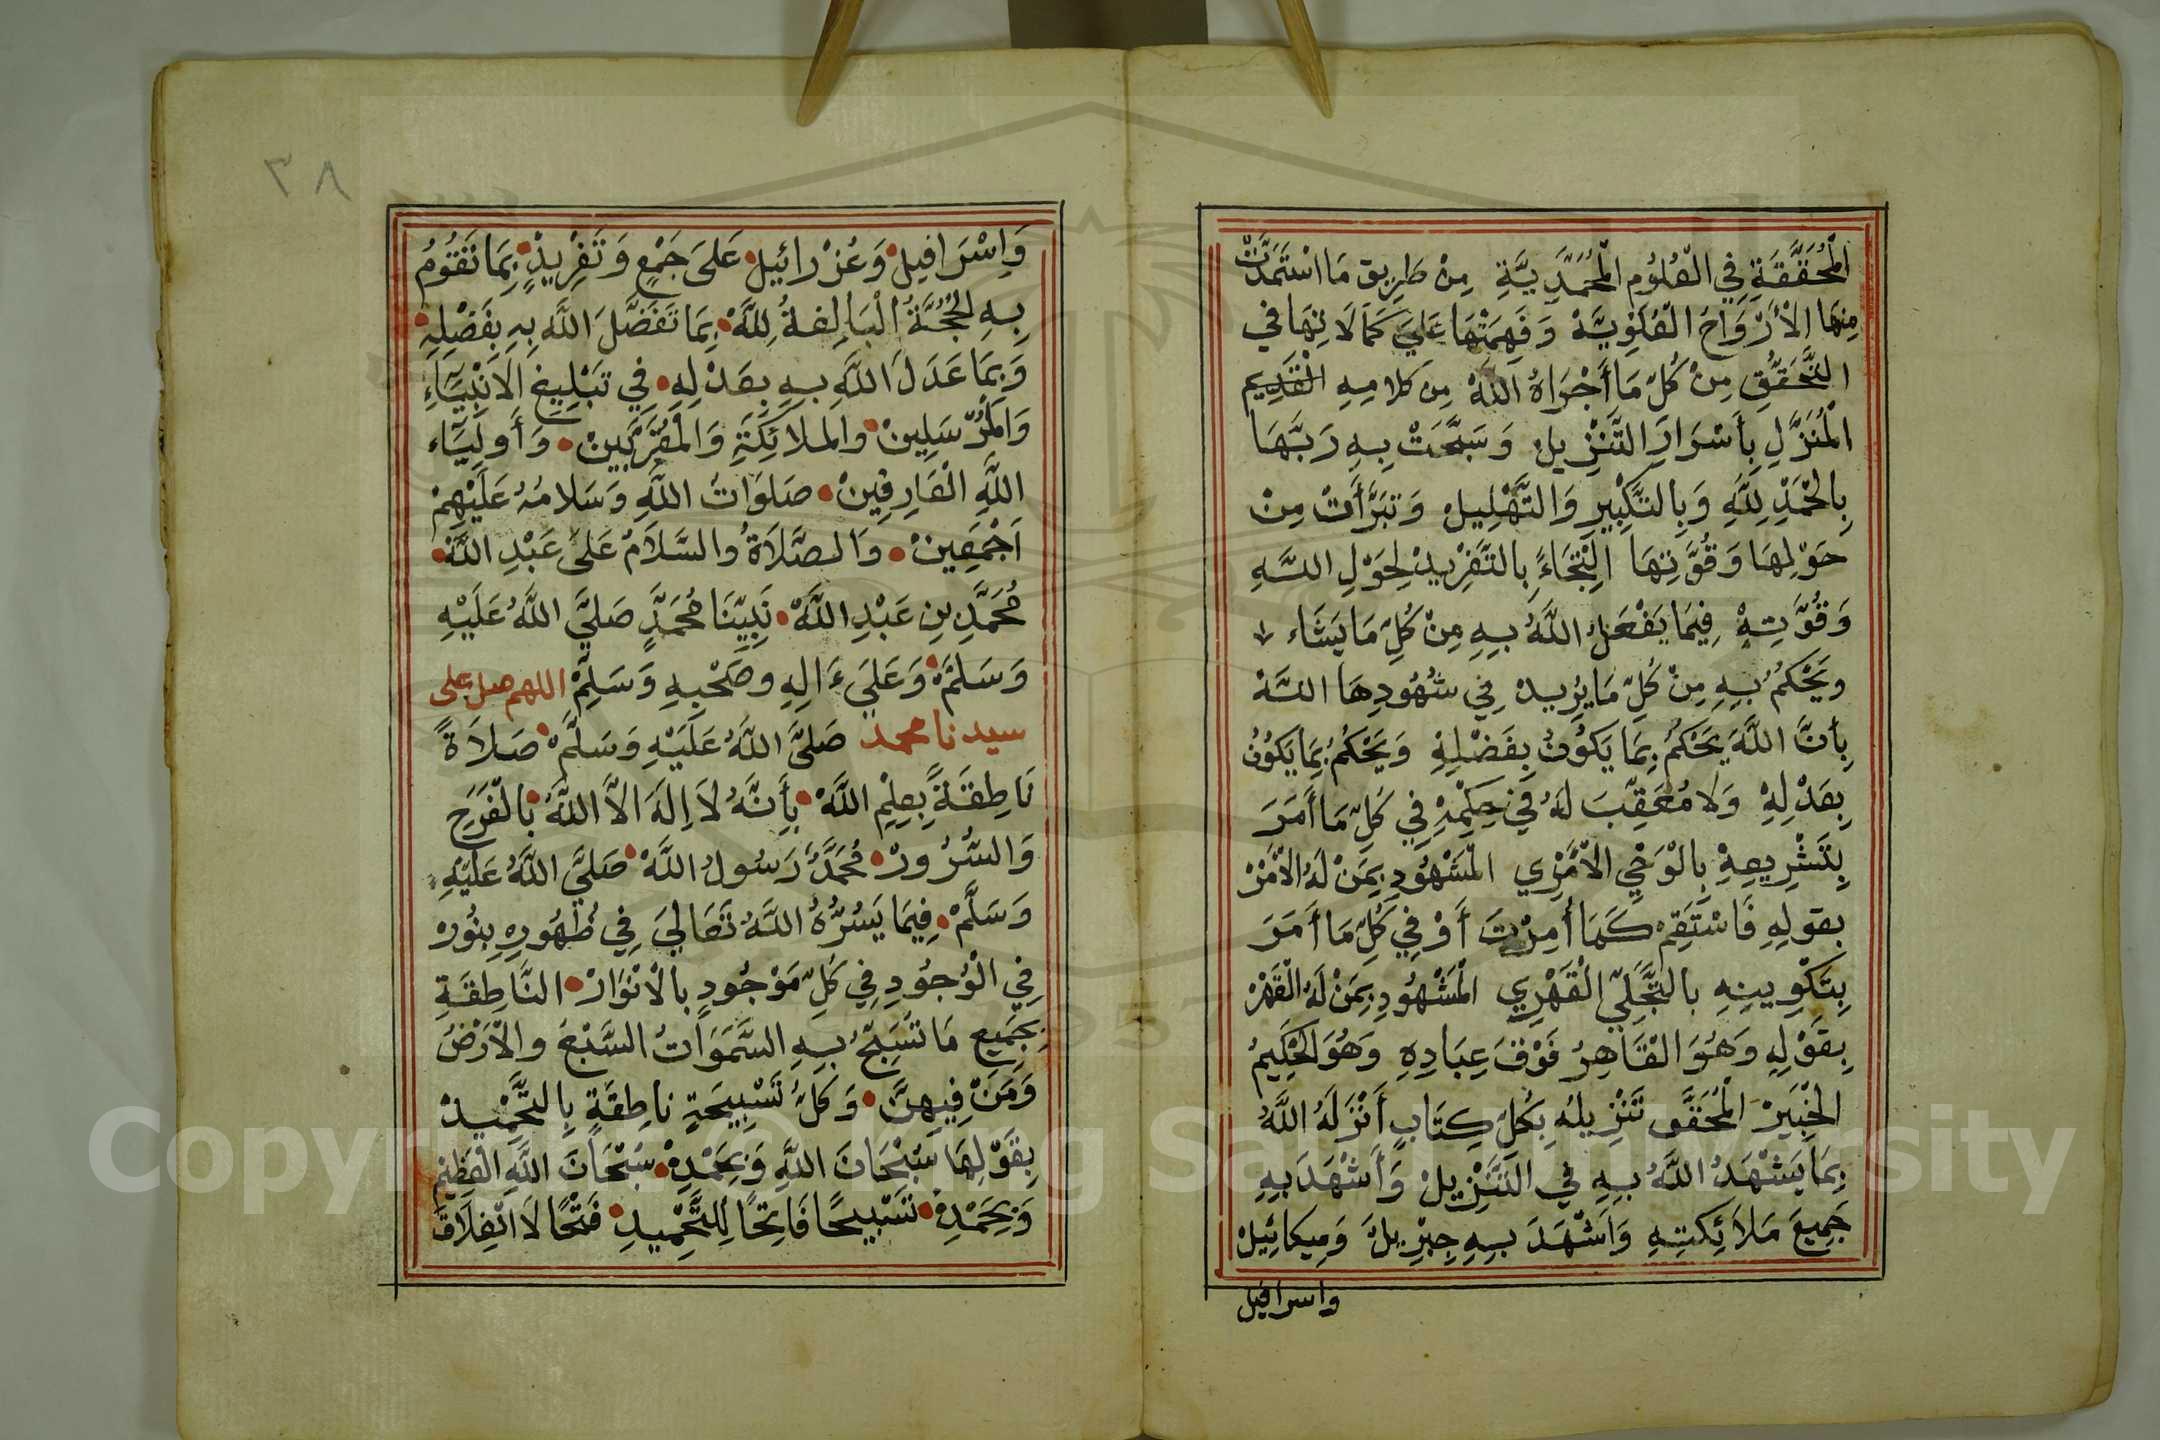 الْمُحَقَّقَةِ فِي الْعُلُومِ الْمُحَمَّدِيَّةِ مِنْ طَرِيقِ مَا اسْتَمَدَّتْ
مِنْهَا الْأَرْوَاحُ الْعُلْوِيَّةُ وَفَهِمَتْهَا عَلَى كَمَالَاتِهَا فِي
التَّحَقُّقِ مِنْ كُلِّ مَا أَجْرَاهُ اللَّهُ مِنْ كَلَامِهِ الْقَدِيمِ
الْمُنَزَّلِ بِأَسْرَارِ التَّنْزِيلِ وَسَبَّحَتْ بِهِ رَبَّهَا
بِالْحَمْدِ لِلَّهِ وَبِالتَّكْبِيرِ وَالتَّهْلِيلِ وَتَبَرَّأَتْ مِنْ
حَوْلِهَا وَقُوَّتِهَا الْتِجَاءً بِالتَّفْرِيدْ لِحَوْلِ اللَّهِ
وَقُوَّتِهْ فِيمَا يَفْعَلُ اللَّهُ بِهِ مِنْ كُلِّ مَا يَشَاء
وَيَحْكُمُ بِهِ مِنْ كُلِّ مَا يُرِيدْ فِي شُهُودِهَا اللَّهْ
بِأَنَّ اللَّهَ يَحْكُمُ بِمَا يَكُونُ بِفَضْلِهِ وَيَحْكُمُ بِمَا يَكُونُ
بِعَدْلِهِ وَلَا مُعَقِّبَ لَهُ فِي حُكْمِهِ فِي كُلِّ مَا أَمَرَ
بِتَشْرِيعِهِ بِالْوَحْيِ الْأَمْرِي الْمَشْهُودِ بِمَنْ لَهُ الْأَمْرْ
بِقَوْلِهِ فَاسْتَقِمْ كَمَا أُمِرْتَ أَوْ فِي كُلِّ مَا أَمَرَ
بِتَكْوِينِهِ بِالتَّجَلِّي الْقَهْرِي الْمَشْهُودِ بِمَنْ لَهُ الْقَهْرْ
بِقَوْلِهِ وَهُوَ الْقَاهِرُ فَوْقَ عِبَادِهِ وَهُوَ الْحَكِيمُ
الْخَبِيرْ الْمُحَقَّق تَنْزِيلُهُ بِكُلِّ كِتَابٍ أَنْزَلَهُ اللَّهُ
بِمَا يَشْهَدُ اللَّهُ بِهِ فِي التَّنْزِيلْ وَأَشْهَدَ بِهِ
جَمِيعَ مَلَائِكَتِهِ وَأَشْهَدَ بِهِ جِبْرِيلَ وَمِيكَائِيلْ
واسرافيل
٣٨
وَإِسْرَافِيلْ وَعُزْرَائِيلْ عَلَى جَمْعٍ وَتَفْرِيدٍ بِمَا تَقُومُ
بِهِ الْحُجَّةُ الْبَالِغَةُ لِلَّهْ بِمَا تَفَضَّلَ اللَّهُ بِهِ بِفَضْلِهِ
وَبِمَا عَدَلَ اللَّهُ بِهِ بِعَدْلِهِ فِي تَبْلِيغِ الْأَنْبِيَآءِ
وَالْمُرْسَلِينْ وَالْمَلَائِكَةِ وَالْمُقَرَّبِينْ وَأَوْلِيَآء
اللَّهِ الْعَارِفِينْ صَلَوَاتُ اللَّهِ وَسَلَامُهُ عَلَيْهِمْ
أَجْمَعِينْ وَالصَّلَاةُ وَالسَّلَامُ عَلَى عَبْدِ اللَّهْ
مُحَمَّدِ بْنِ عَبْدِ اللَّهْ نَبِيِّنَا مُحَمَّدٍ صَلَّى اللَّهُ عَلَيْهِ
وَسَلَّمْ وَعَلَى ءَالِهِ وَصَحْبِهِ وَسَلِّمْ اللهم صل على
سيدنا محمد صَلَّى اللَّهُ عَلَيْهِ وَسَلَّمْ صَلَاةً
نَاطِقَةً بِعِلْمِ اللَّهْ بِأَنَّهُ لَا إِلَهَ إِلَّا اللَّهُ بِالْفَرَحِ
وَالسُّرُورْ مُحَمَّدٌ رَسُولُ اللَّهْ صَلَّى اللَّهُ عَلَيْهِ
وَسَلَّمْ فِيمَا يَسُرُّهُ اللَّهُ تَعَالَى فِي ظُهُورِهِ بِنُورِهْ
فِي الْوُجُودِ فِي كُلِّ مَوْجُودٍ بِالْأَنْوَارْ النَّاطِقَةِ
بِجَمِيعِ مَا تُسَبِّحُ بِهِ السَّمَوَاتُ السَّبْعُ وَالْأَرْضُ
وَمَنْ فِيهِنَّ وَكُلُّ تَسْبِيحَةٍ نَاطِقَةٍ بِالتَّحْمِيدْ
بِقَوْلِهَا سُبْحَانَ اللَّهِ وَبِحَمْدِهْ سُبْحَانَ اللَّهِ الْعَظِيمِ
وَبِحَمْدِهْ تَسْبِيحًا فَاتِحًا لِلتَّحْمِيدِ فَتْحًا لَا انْغِلَاقَ
Copyright © King Saud University